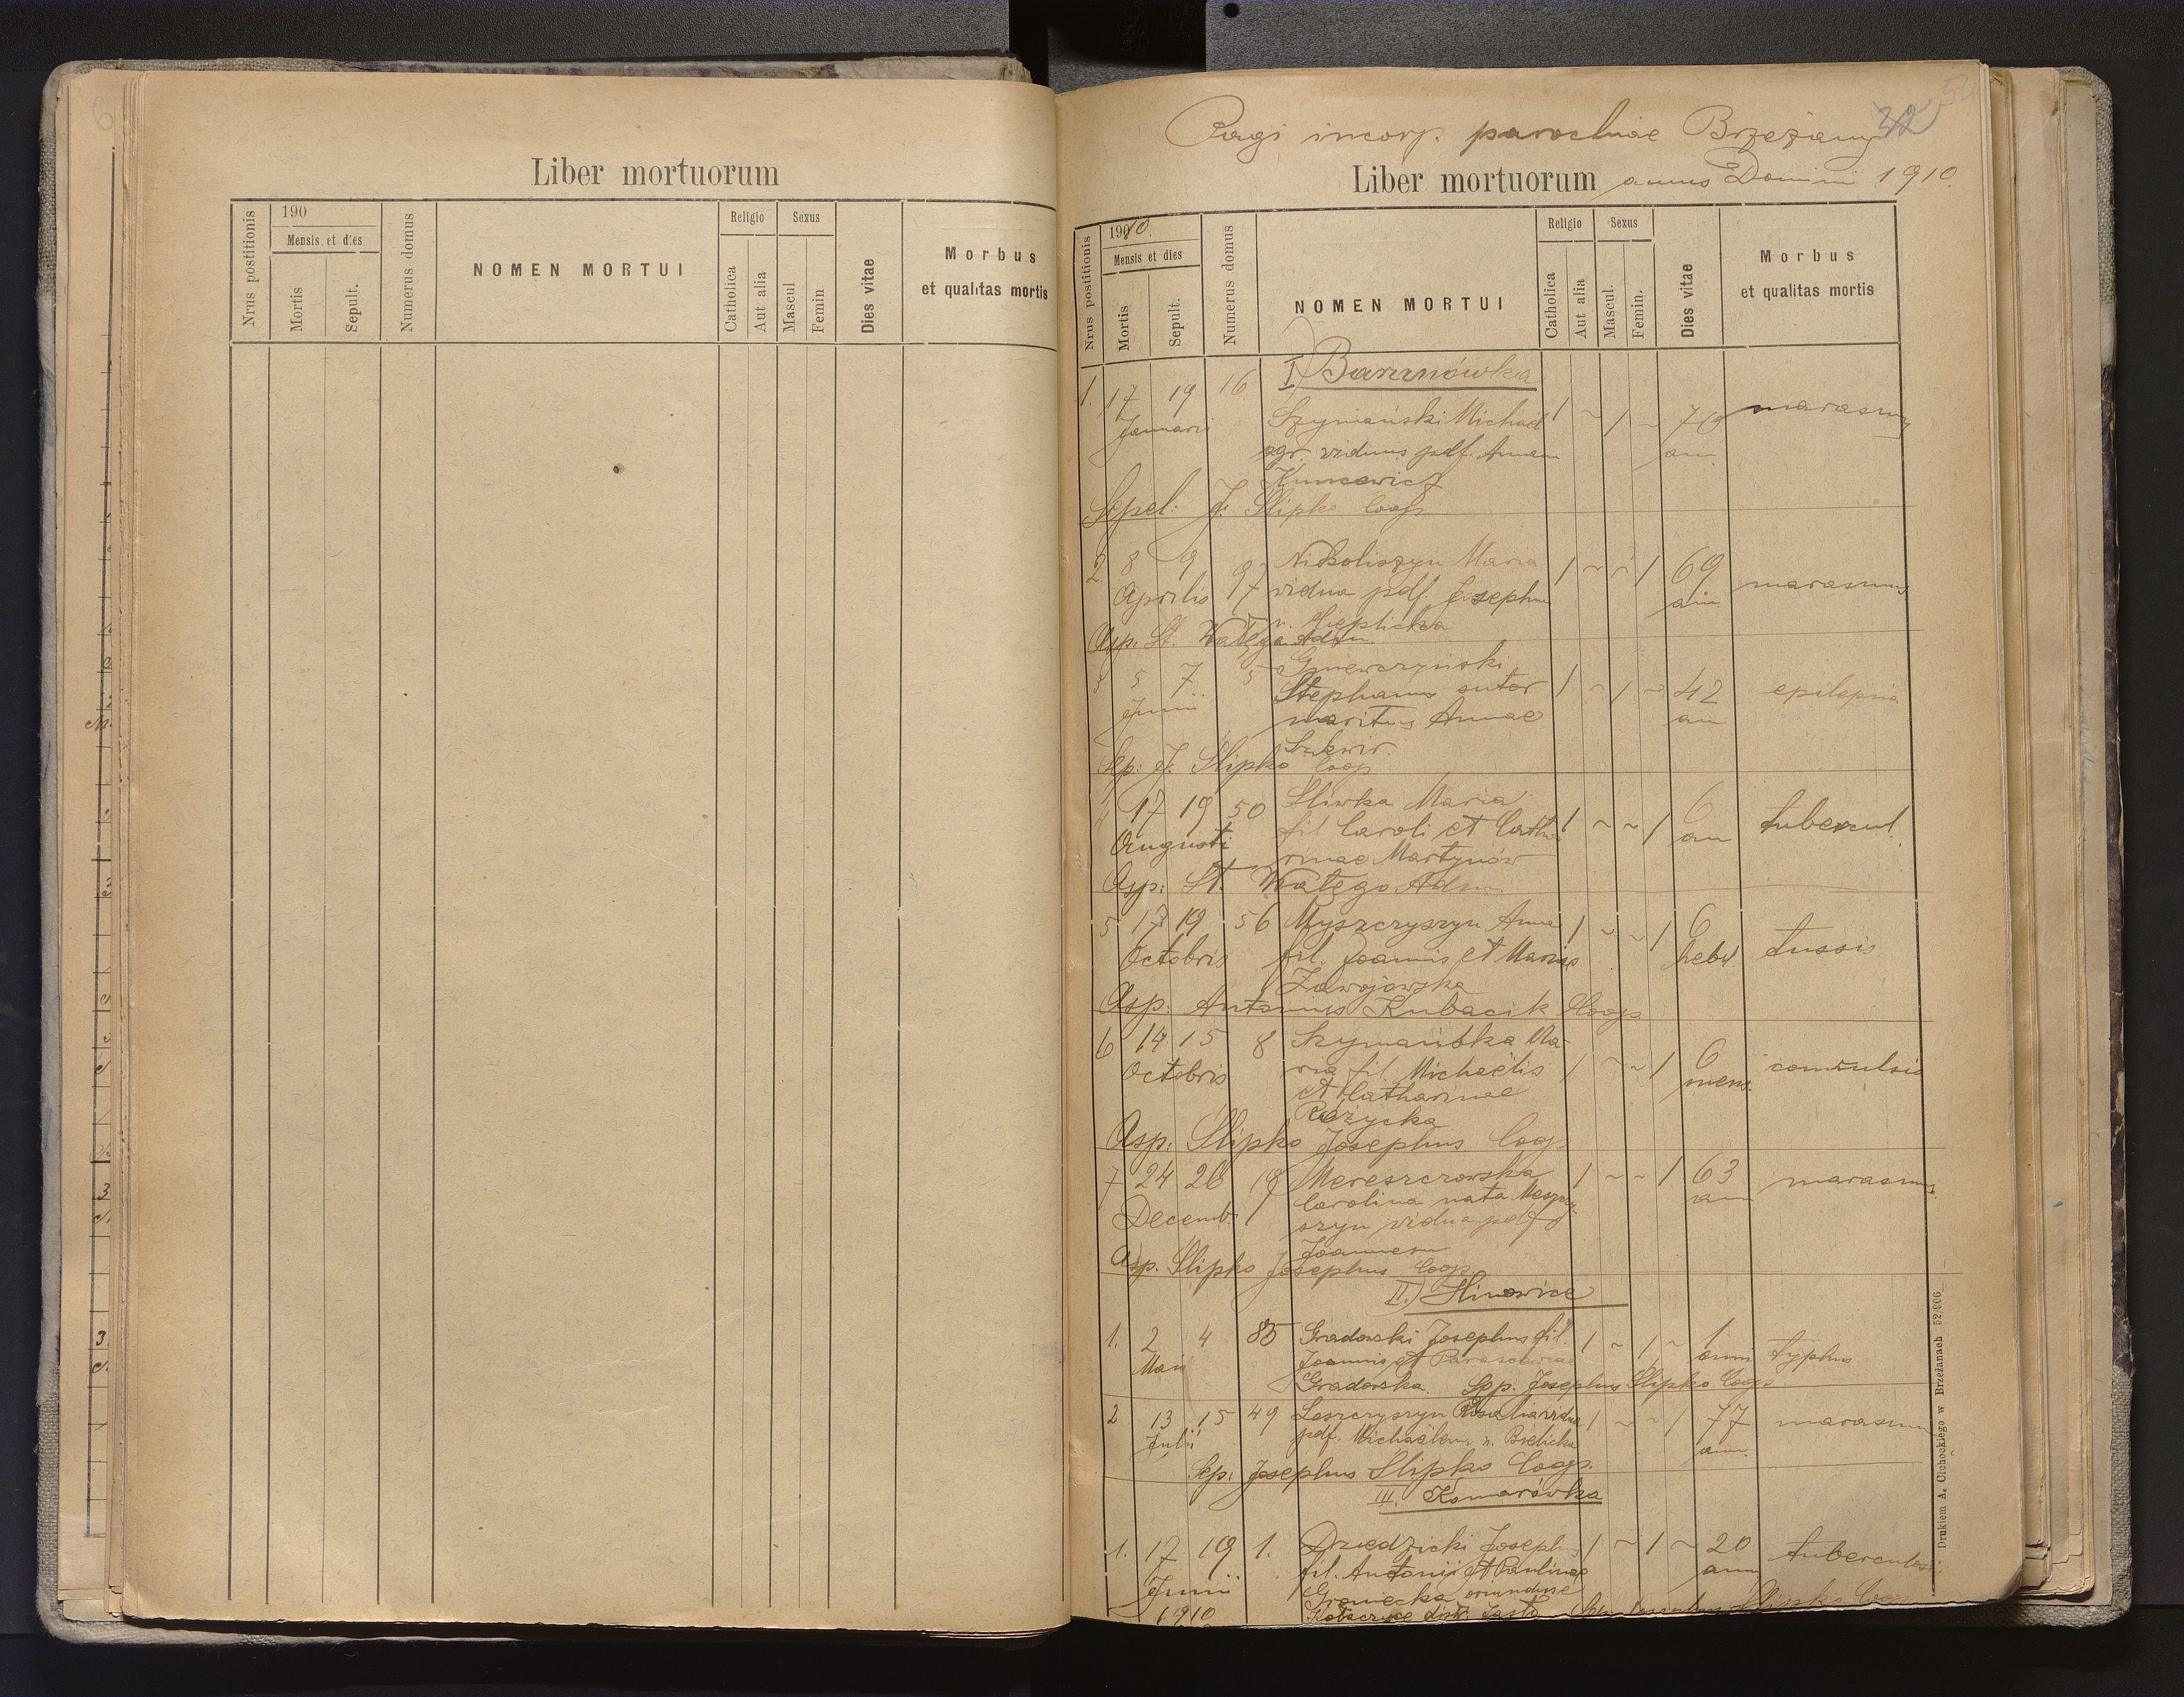 Liber mortuorum
Nrus postitionis
190
Mensis et dies
Mortis
Sepult.
Numerus domus
NOMEN MORTUI
Religio
Catholica
Aut alia
Sexus
Mascul
Femin
Dies vitae
Morbus
et qualitas mortis
Pagi incorp. parochiae Brzeżany
32
Liber mortuorum annus Domini 1910.
Nrus postitionis
1910.
Mensis et dies
Mortis
Sepult.
Numerus domus
NOMEN MORTUI
Religio
Catholica
Aut alia
Sexus
Mascul.
Femin.
Dies vitae
Morbus
et qualitas mortis
I) Baranówka
1. 17 19 16 Szymański Michael 1 ~ 1 ~ 70 marasmus
Januarii agr. viduus pdf. Annam an.
Kuncewicz
Sepel: J. Ślipko Coop.
2 8 9 97 Nikoliszyn Maria 1 ~ ~ 1 69 marasmus
Aprilis vidua pdf. Josephum an
Asp. St. Wałęga Adm.
3 5 7 5 Gniewczyński 1 ~ 1 ~ 42 epilepsia
Junii Stephanus sutor an
maritus Annae
Sep: J. Ślipko Coop
4 17 19 50 Śliwka Maria 1 ~ ~ 1 6 tubercul.
Augusti fil Caroli et Catha an
rinae Martynów
Asp: St. Wałęga Adm.
5 17 19 56 Myszczyszyn Anna 1 ~ ~ 1 6 tussis
Octobris fil. Joannis et Mariae hebd.
Zawojowska
Asp: Antonius Kubacik Coop
6 14 15 8 Szymańska Ma- 1 ~ ~ 1 6 convulsio
Octobris ria fil. Michaëlis mens.
et Catharinae
Różycka
Asp: Ślipko Josephus Coop
7 24 26 18 Mereszczowska 1 ~ ~ 1 63 marasmus
Decemb. Carolina nata
szyn vidua pdf
Joannem an
Asp. Ślipko Josephus Coop.
II.) Hinowice
1. 2 4 85 Gradowski Josephus fil. 1 ~ 1 ~ 1 typhus
Maii Joannis et Parascewiae anni
Gradowska. Sep. Josephus Ślipko Coop
2 13 15 49 Leszczyszyn Rosalia vidua 1 ~ ~ 1 77 marasmus
Julii pdf. Michaëlem, n. Bielicka ann.
Sep: Josephus Ślipko Coop.
III. Komarówka
1. 17 19 1. Dziedzicki Josephus 1 ~ 1 ~ 20 tuberculosis
Junii fil. Antonii et Paulinae ann
1910 Groniecka oriundus e
Kołaczyce distr. Jasło Sep. Josephus Ślipko Coop
Drukiem A. Cichockiego w Brzeżanach 52/906